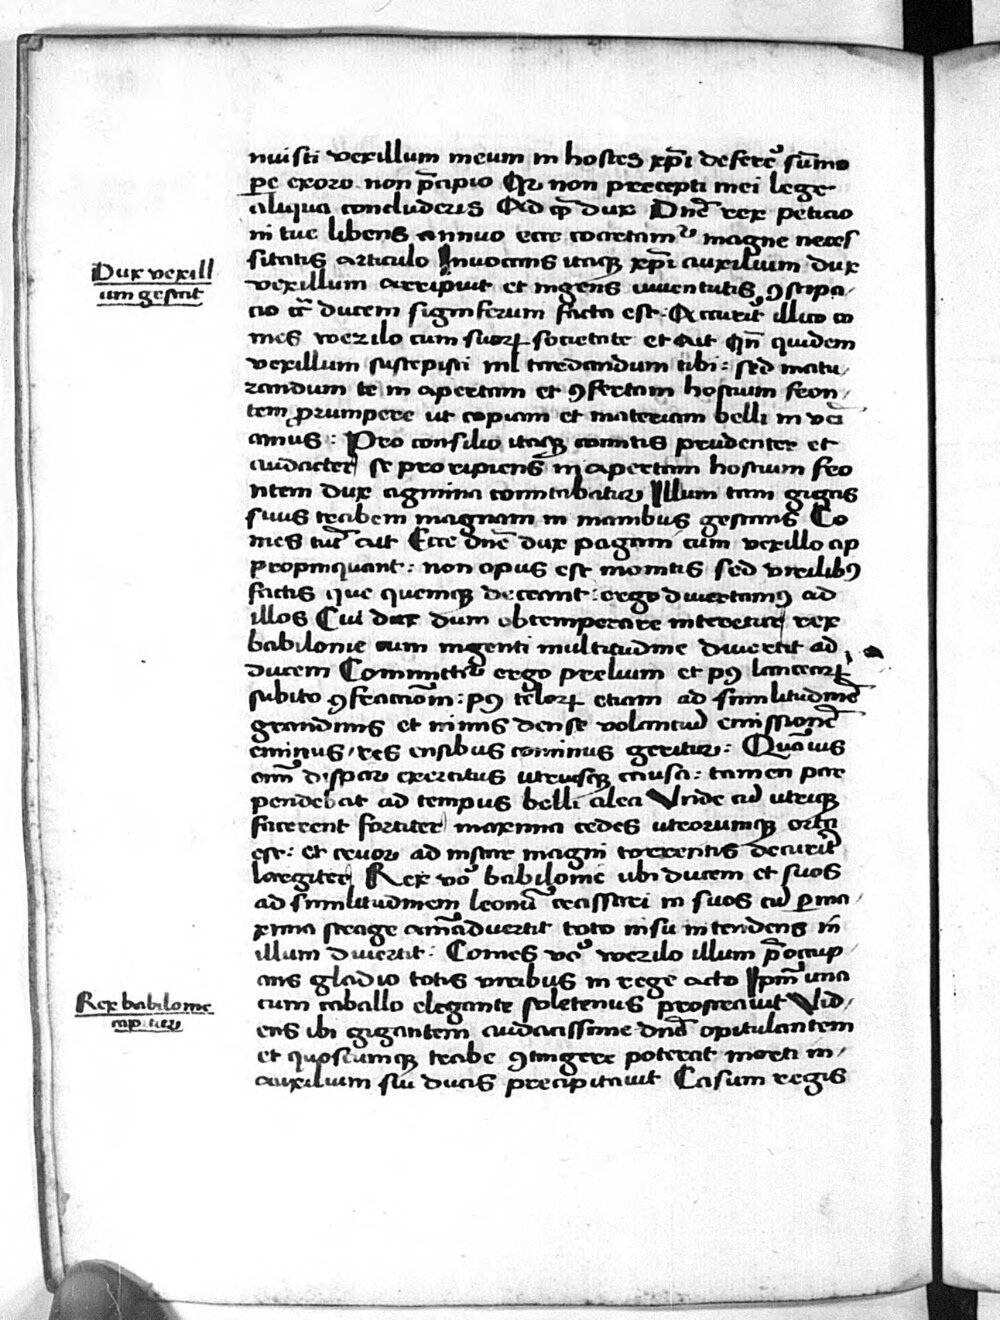 nuisti vexillum meum in hostes xpĩ deferẽ sũmo
pe exoro non p̃cipio Qr̃ non precepti mei lege
aliqua concluderis Ad q̃ dux Dñe rex peticio
ni tue libens annuo ecce magne neces
sitatis articulo Inuocans itaqꝫ xpĩ auxilium dux
vexillum arripuit et ingens iuuentutis ꝯstipa
cio cr̃ ducem signiferum facta est: Accurit̃ illico co
mes wezilo cum suorꝝ societate et ait Qñ quidem
vexillum suscepisti nl̃ tardandum tibi: sed matu
randum te in apertam et ꝯfertam hostium fron
tem prumpere ut copiam et materiam belli in
amus: Pro consilio itaqꝫ comitis prudenter et
audacter se proripiens in apertam hostium fro
ntem dux agmina comitabatur Illum tam gigas
suus trabem magnam in manibus gestans Co
mes tũc ait Ecce dñe dux pagani cum vexillo ap
propinquant: non opus est monitis sed virilibꝯ
factis que quemqꝫ deceant: ergo diuertamꝯ ad
illos Cui dux dum obtemperare niteretur rex
babilonie cum ingenti multitudine diuertit ad
ducem Committit̃ ergo prelium et pꝯ lancearꝝ
subito ꝯfractiõm: pꝯ telorꝝ etiam ad similitudinẽ
grandinis et nimis dense volantiũ emissionẽ
eminus, res ensibus cominus geritur: Quãuis
eñi dispar exercitus utrusqꝫ causa: tamen par
pendebat ad tempus belli alea Vnde cũ utriqꝫ
facerent fortiter maxima cedes utrorumqꝫ orta
est: et cruor ad instar magni torrentis decurit̃
largiter Rex vo᷉ babilonie ubi ducem et suos
ad similitudinem leonũ crassari in suos cũ ꝑma
xima strage aĩaduertit toto nisu intendens in
illum diuertit: Comes vo᷉ wezilo illum p̃occup
ans gladio totis viribus in rege acto ipm̃ una
cum caballo elegante soletenus prostrauit Vid
ens ibi gigantem audacissime dñõ opitulantem
et quoscumqꝫ trabe ꝯtingere poterat morti in
auxilium sui ducis precipitauit Casum regis
Dux vexill
um gestat
Rex babilonie
capitur